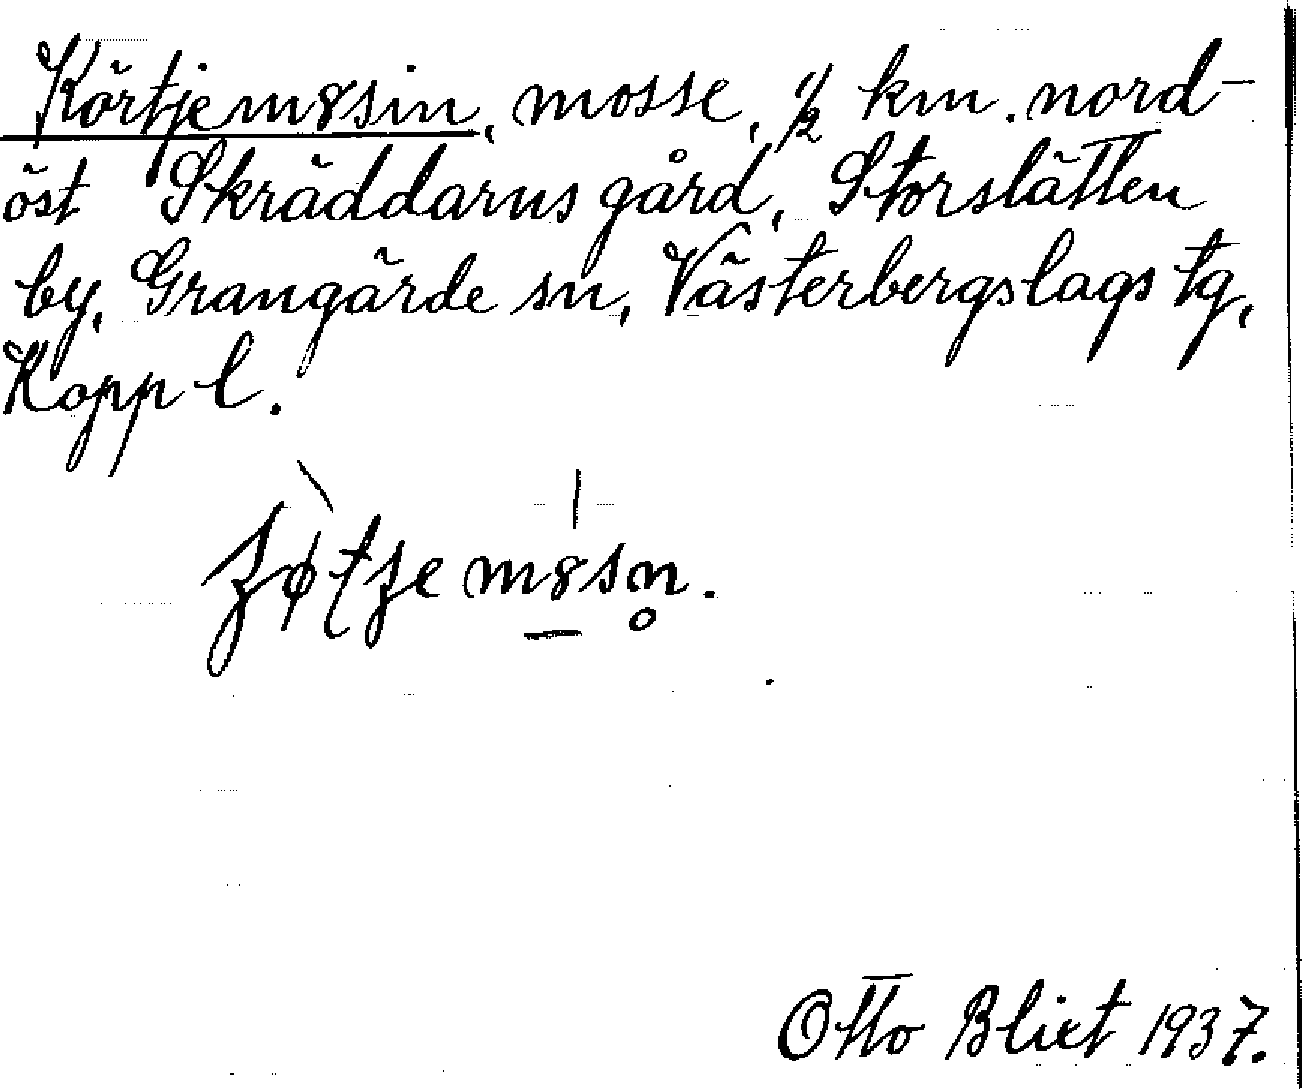 Körtjem8sin, mosse, 1/2 km. nord-
öst Skräddarns gård, Storslätten
by, Grangärde sn, Västerbergslags tg,
Kopp l.
Otto Blixt 1937.